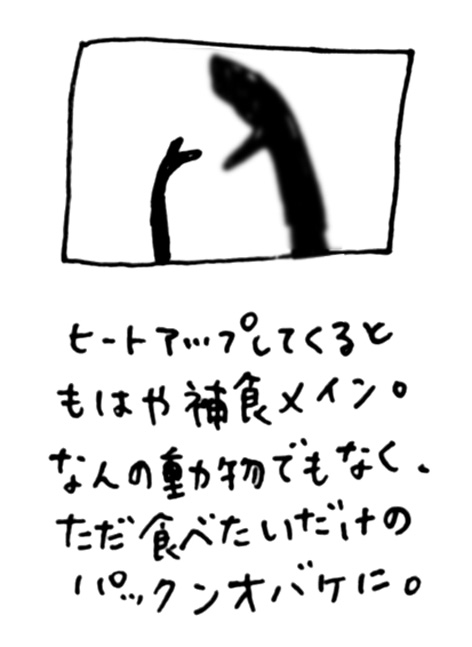 ヒートアップしてくると
もはや補食メイン。
なんの動物でもなく、
ただ食べたいだけの
パックンオバケに。